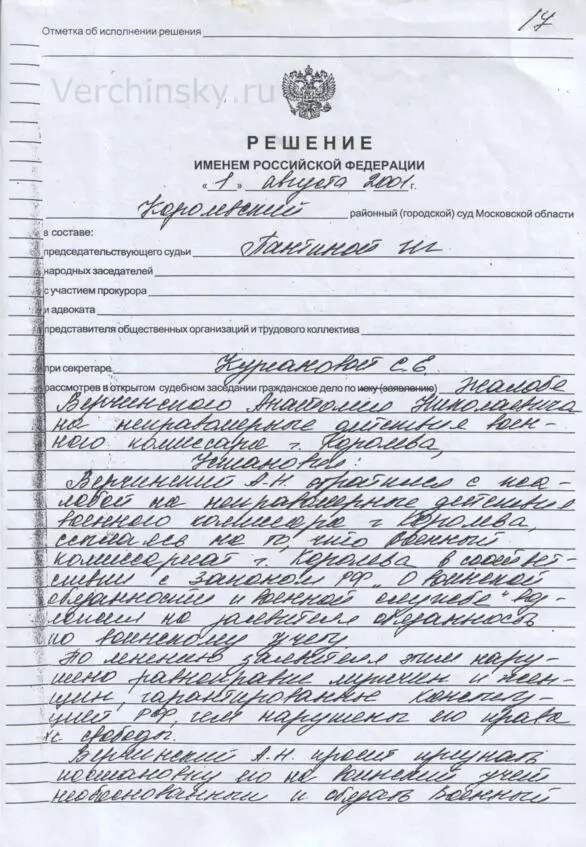 17
Отметка об исполнении решения
Verchinsky.ru
РЕШЕНИЕ
ИМЕНЕМ РОССИЙСКОЙ ФЕДЕРАЦИИ
„ 1 „ августа 2001 г.
Королевский районный (городской) суд Московской области
в составе:
председательствующего судьи Пантиной
народных заседателей
с участием прокурора
и адвоката
представителя общественных организаций и трудового коллектива
при секретаре Курзаковой С.Е.
рассмотрев в открытом судебном заседании гражданское дело по иску (заявлению) жалобе
Верчинского Анатолия Николаевича
на неправомерные действия воен-
ного комиссара г. Королева,
Установил:
Верчинский А.Н. обратился с жа-
лобой на неправомерные действия
военного комиссара г. Королева,
ссылаясь на то, что военный
комиссариат г. Королева в соответ-
ствии с законом РФ „О воинской
обязанности и военной службе"
на заявителя обязанность
по воинскому учету.
По мнению заявителя этим нару-
шено равноправие мужчин и жен-
щин, гарантированное Конститу-
цией РФ, чем нарушены его права
и свободы.
Верчинский А.Н. просит признать
постановку его на воинский учет
необоснованным и обязать военный